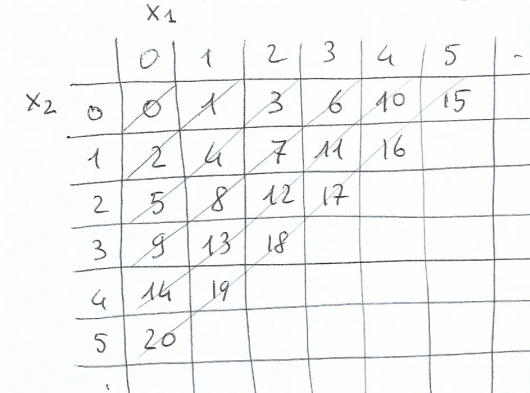 x1
0 1 2 3 4 5 -
x2 0 0 1 3 6 10 15
1 2 4 7 11 16
2 5 8 12 17
3 9 13 18
4 14 19
5 20